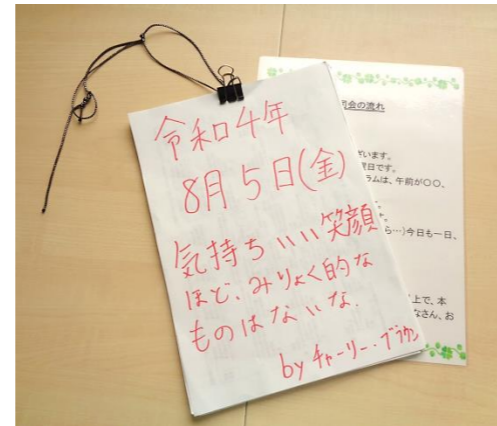 令和4年
8月5日(金)
気持ちいい笑顔
ほど、みりょく的な
ものはないな.
by チャーリー・ブラウン
司会の流れ
ざいます。
曜日です。
ラムは、午前が○○、
ら…)今日も一日、
上で、本
なさん、お